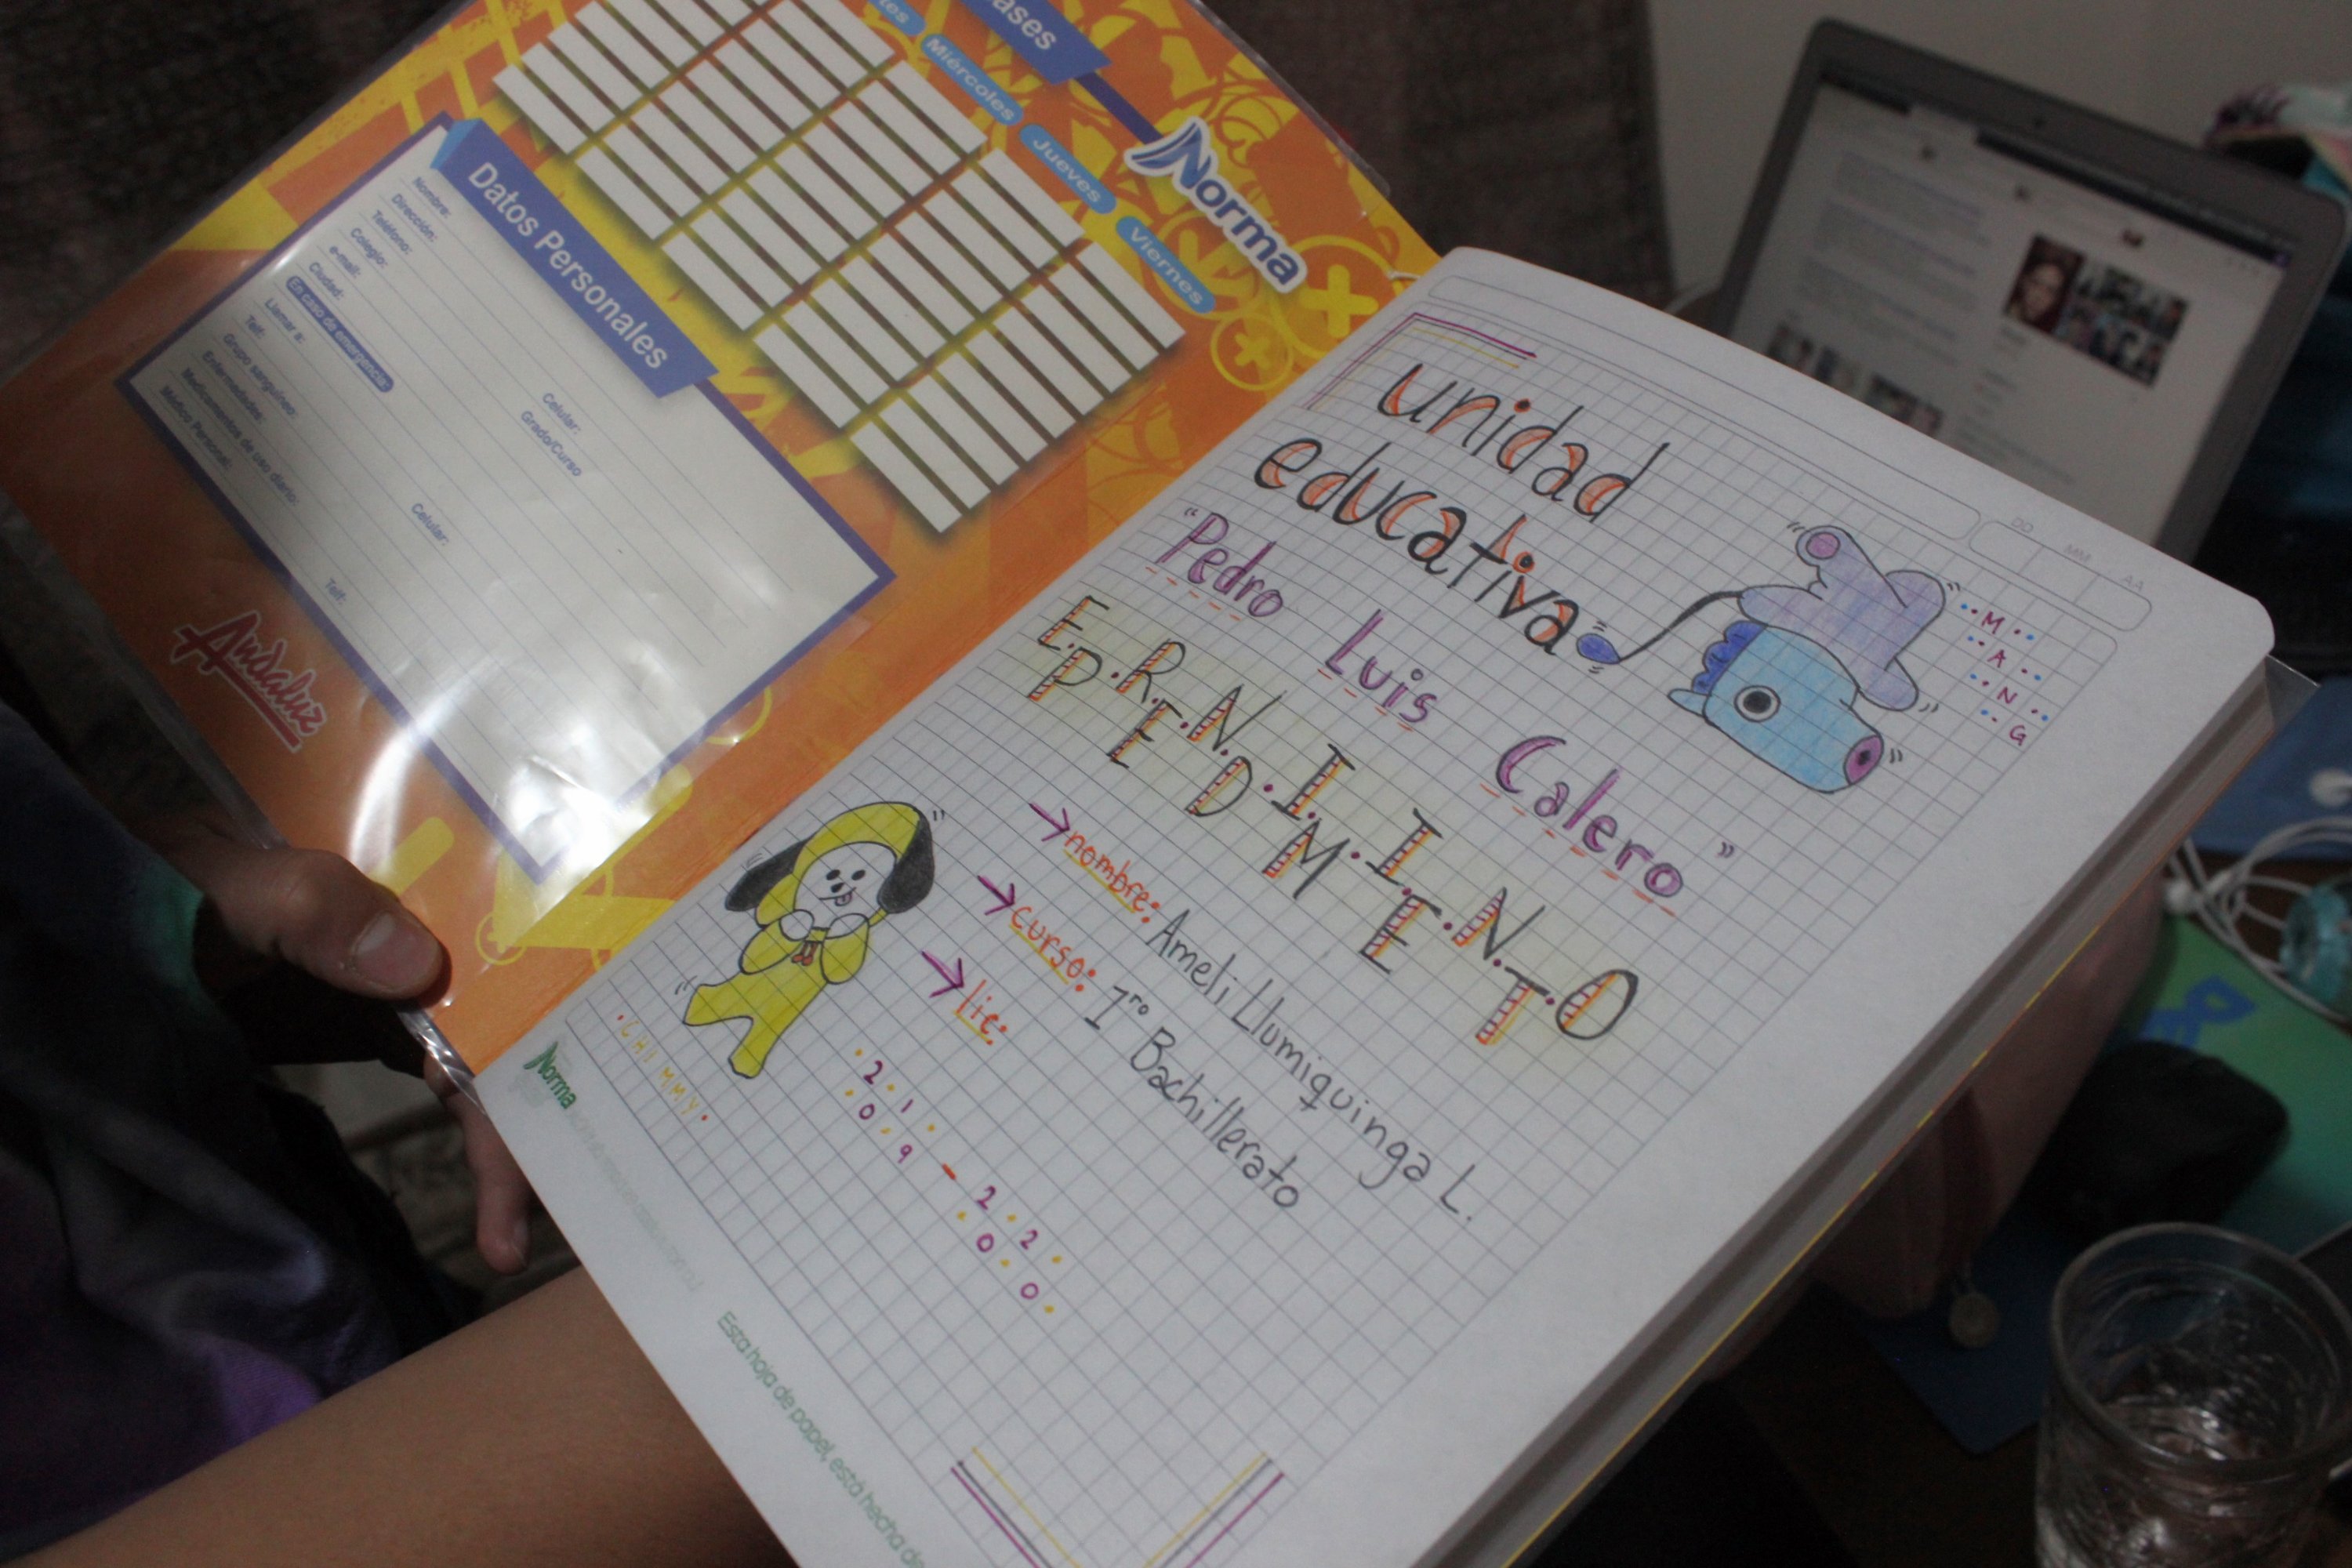 Miércoles
Jueves
Viernes
Norma
Datos Personales
Nombre:
Dirección:
Teléfono: Celular:
Colegio: Grado/Curso
e-mail:
Ciudad:
En caso de emergencia:
Llamar a:
Telf: Celular:
Grupo sanguíneo:
Enfermedades:
Medicamentos de uso diario:
Médico Personal: Telf:
Andaluz
DD MM AA
unidad
educativa
"Pedro Luis Calero"
M
A
N
G
E.P.R.E.N.D.I.M.I.E.N.T.O
nombre: Ameli Llumiquinga L.
curso: 1ro Bachillerato
lic:
2019-2020
.CHIMMY.
Norma
Esta hoja de papel, está hecha de